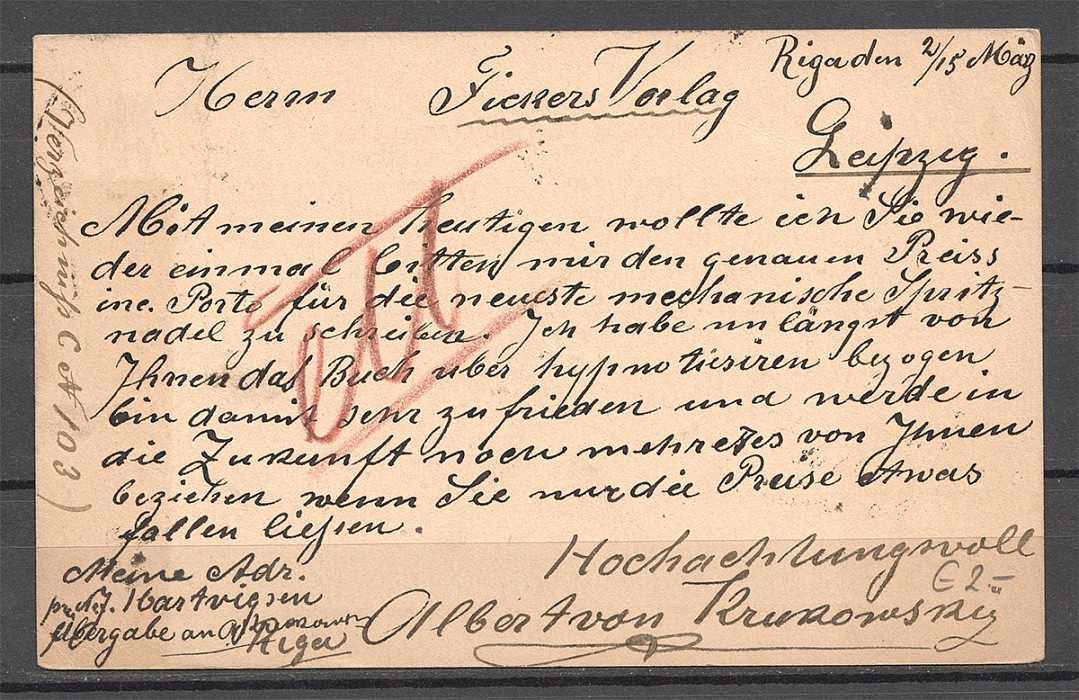 Riga den 2/15 März
Herrn Fickers Verlag
Leipzig.
Mit meinen heutigen wollte ich Sie wie-
der einmal bitten mir den genauen Preiss
inc. Porto für die neueste mechanische Spritz-
nadel zu schreiben. Ich habe unlängst von
Ihnen das Buch uber hypnotisiren bezogen
bin damit sehr zufrieden und werde in
die Zukunft noch mehreres von Ihnen
beziehen wenn Sie nur die Preise etwas
fallen liessen.
Hochachtungsvoll
Albert von Krukowsky
Meine Adr.
J. Hartvigsen
Übergabe an A.
Riga
(Verzeichniss C A 103)
€ 2.-